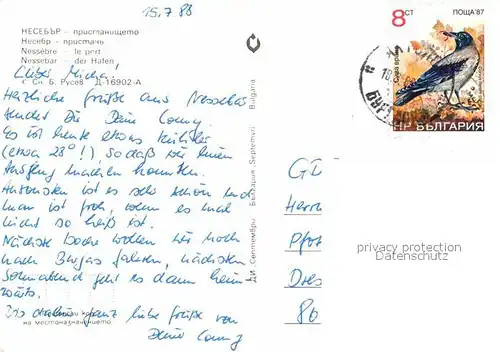 15.7.88
НЕСЕБЪР - пристанището
Несебр - пристань
Nessèbre - le port
Nessebar - der Hafen
© Сн. Б. Русев Д-16902-А
Lieber Micha!
Herzliche Grüße aus Nessebar
sendet Dir Deine Conny.
Es ist heute etwas kühler
(etwa 28°!), so daß wir einen
Ausflug machen konnten.
Ansonsten ist es sehr schön und
man ist froh, wenn es mal
nicht so heiß ist.
Nächste Woche wollen wir noch
nach Burgas fahren, nächsten
Sonnabend geht es dann heim-
wärts.
Bis dahin ganz liebe Grüße von
Deine Conny
на местоназначението
ДИ Септември България Septemvri Bulgaria
8 СТ ПОЩА'87
Сива врана
НР БЪЛГАРИЯ
18
БУРГАС
Herrn
Pfar
Dres
80
privacy protection
Datenschutz